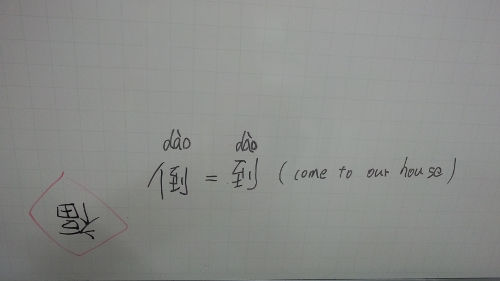 dào dào
倒 = 到 (come to our house)
福